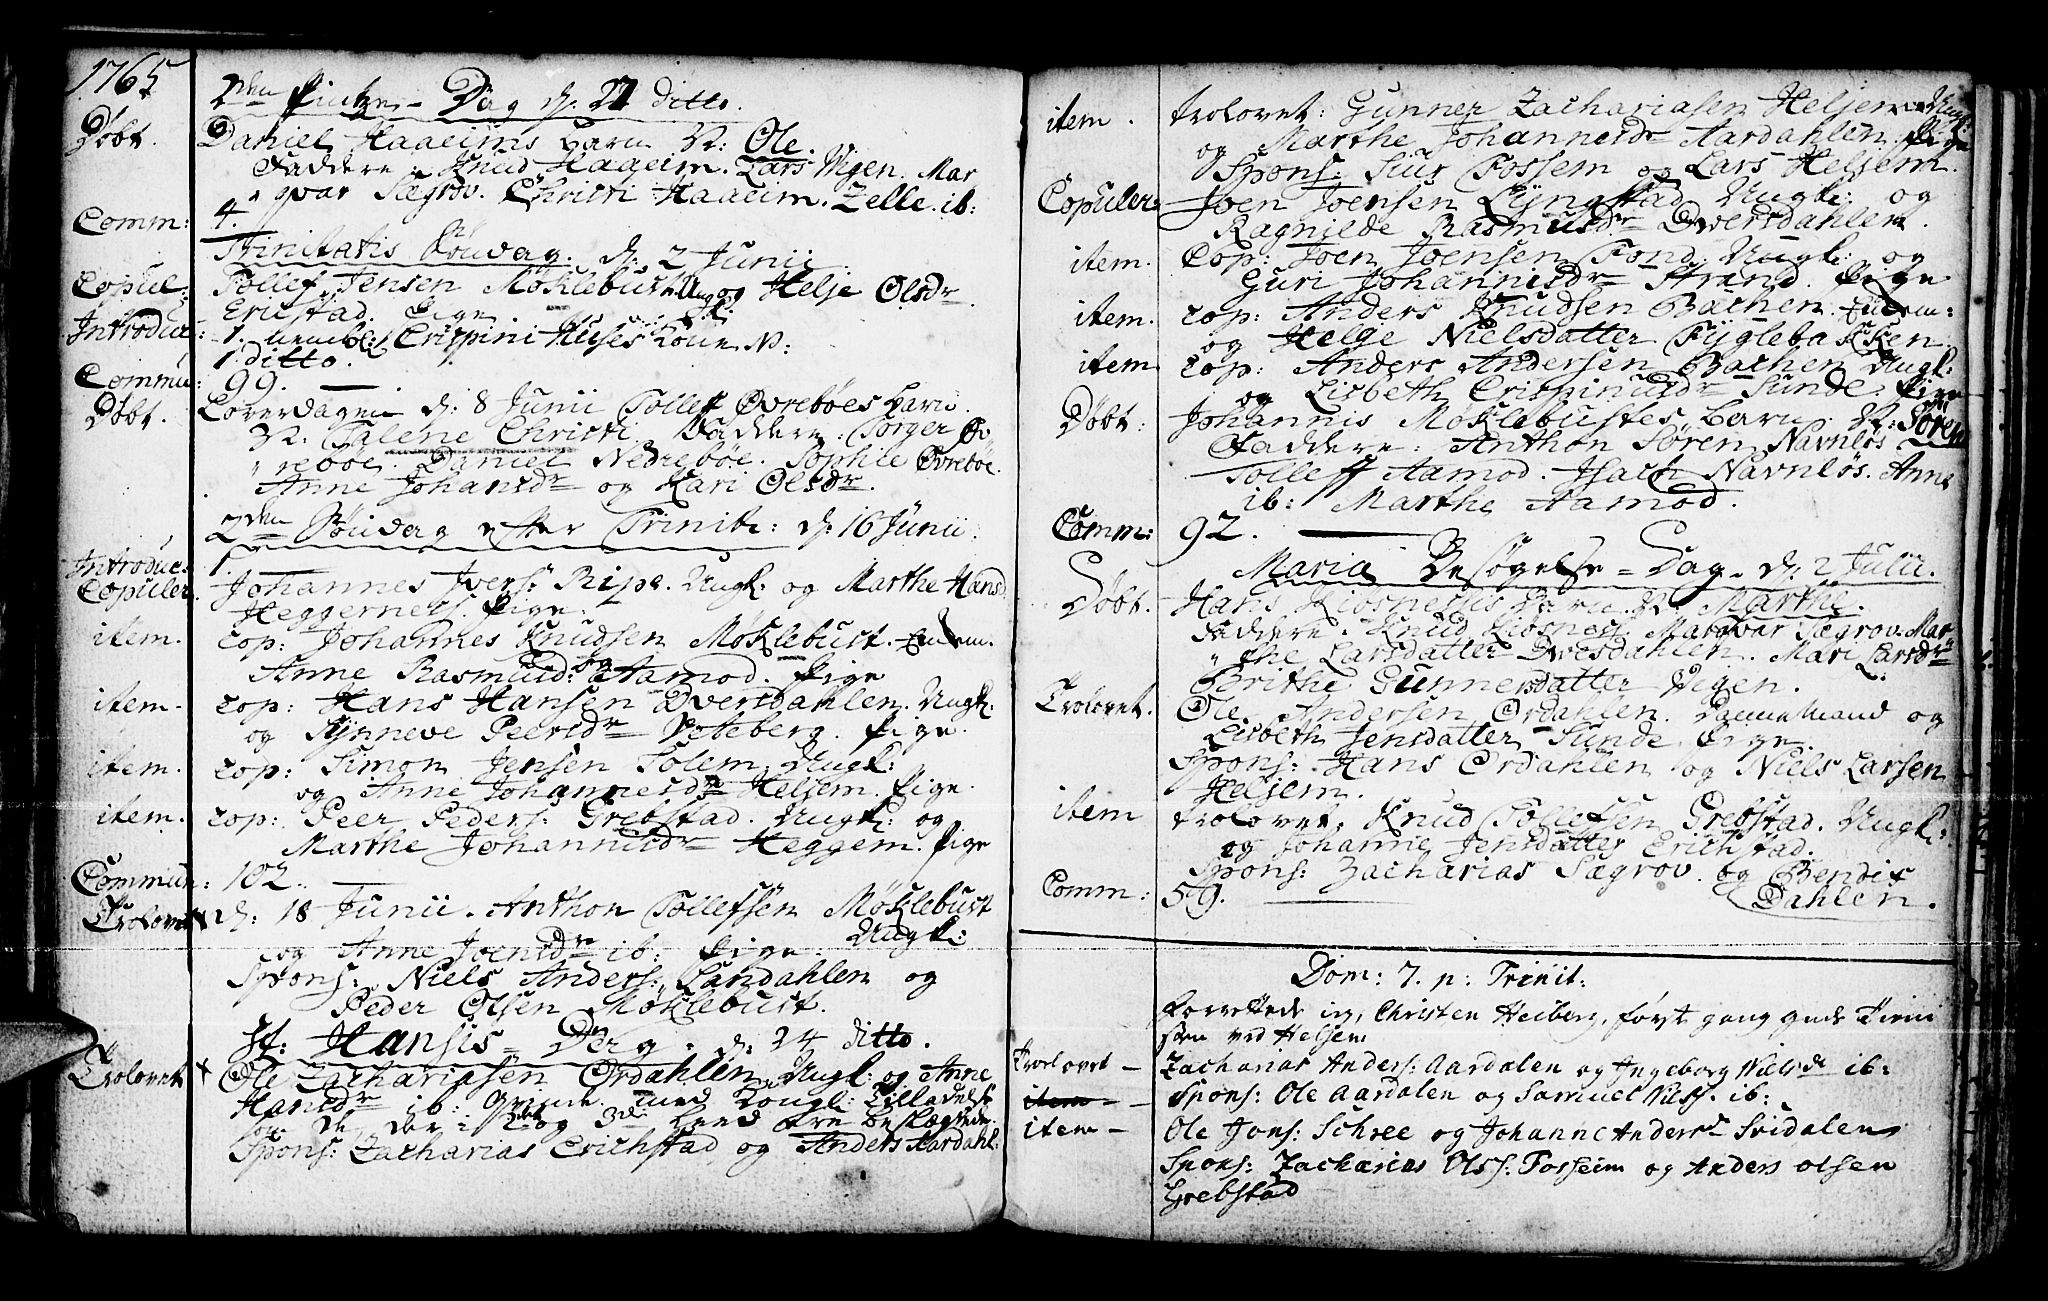 1765
2den Pintze-Dag d: 27 ditto.
Døbt. Daniel Haaeims barn N: Ole.
Faddere: Knud Haaeim. Lars Vigen. Mar
qvar Sægrov. Christi Haaeim. Zelle ib:
Comm: 4.
Trinitatis Søndag. d: 2 Junii
Copul: Tollef Jensen Møklebust Ungk: og Helje Olsdr
Erichstad. Pige.
Introduc: 1. nembl: Crispini Huses Kone N:
1 ditto.
Commu: 99.
Døbt. Løverdagen d: 8 Junii Tolleff Øvrebøes barn
N: Talene Christi. Faddere: Torger Øv
rebøe. Daniel Nedrebøe. Sophie Øvrebøe.
Anne Johansdr og Kari Olsdr.
2den Søndag efter Trinit: d: 16 Junii
Introduc: 1.
Copuler. Johannes Ivers: Ripe. Ungk: og Marthe Hansd
Heggernets. Pige.
item. cop: Johannes Knudsen Møklebust. Enkem.
og Anne Rasmusd: Aamod. Pige
item. cop: Hans Hansen Dversdahlen. Ungk:
og Synneve Peersdr Voteberg. Pige.
item. cop: Simon Jensen Solem. Ungk:
og Anne Johannesdr Helsem. Pige.
item. cop: Peer Peders: Grebstad. Ungk: og
Marthe Johannisdr Heggem. Pige
Commun: 102.
Trolovet d: 18 Junii. Anthon Tollefsen Møklebust
Ungk:
og Anne Joensdr ib: Pige.
Spons: Niels Anders: Landahlen og
Peder Olsen Møklebust.
St: Hansis-Dag. d: 24 ditto.
Trolovet Ole Zachariasen Ordahlen Ungk: og Anne
Hansdr ib: Med Kongl: Tilladelse
de der i 2det og 3die Leed ere beslægtede.
Spons: Zacharias Erichstad og Anders Aardahl:
item. trolovet: Gunner Zachariasen Helsem Ungk:
og Marthe Johannesdr Aardahlen. Pige
Spons: Siur Fossem og Lars Helsem.
Copuler: Joen Joensen Lyngstad Ungk: og
Ragnilde Rasmusdr Dversdahlen.
item. Cop: Joen Joensen Fond. Ungk: og
Guri Johannisdr Strand. Pige
item. cop: Anders Knudsen Bachen. Enkem:
og Helge Nielsdatter Fyglebakken
item cop: Anders Andersen Bachen Ungk:
og Lisbeth Crispinusdr Sunde. Pige
Døbt: Johannis Møklebustes barn N: Søren
Faddere: Anthon Søren Navnløs
Tolleff Aamod. Isach Navnløs. Anne
ib: Marthe Aamod.
Comm: 92.
Maria Besøgelse-Dag. d: 2 Julii.
Døbt. Hans Kiosnessis Barn N: Marthe.
Faddere: Knud Kiosness Marqvar Sægrov. Mar
the Larsdatter Dvesdahlen. Mari Larsdr
Brithe Gunnersdatter Vigen.
Trolovet. Ole Andersen Ordahlen. Dannemand og
Lisbeth Jensdatter Sunde Pige.
Spons: Hans Ordahlen og Niels Larsen
Helsem.
item trolovet. Knud Tollefsen Grebstad. Ungk:
og Johanne Jensdatter Erichstad.
Spons: Zacharias Sægrov. og Bendix
Dahlen.
Comm: 59.
Dom: 7. p: Trinit:
forrettede ieg, Christen Heiberg, først gang guds Tieni
sten ved Helsem
Trolovet - Zacharias Anders: Aardalen og Ingeborg Nielsdr ib:
item - Spons: Ole Aardalen og Samuel Nilss. ib:
item - Ole Jons: Schree og Johanne Andersdr Svidalen
Spons: Zacharias Olss: Fosseim og Anders Olsen
Grebstad